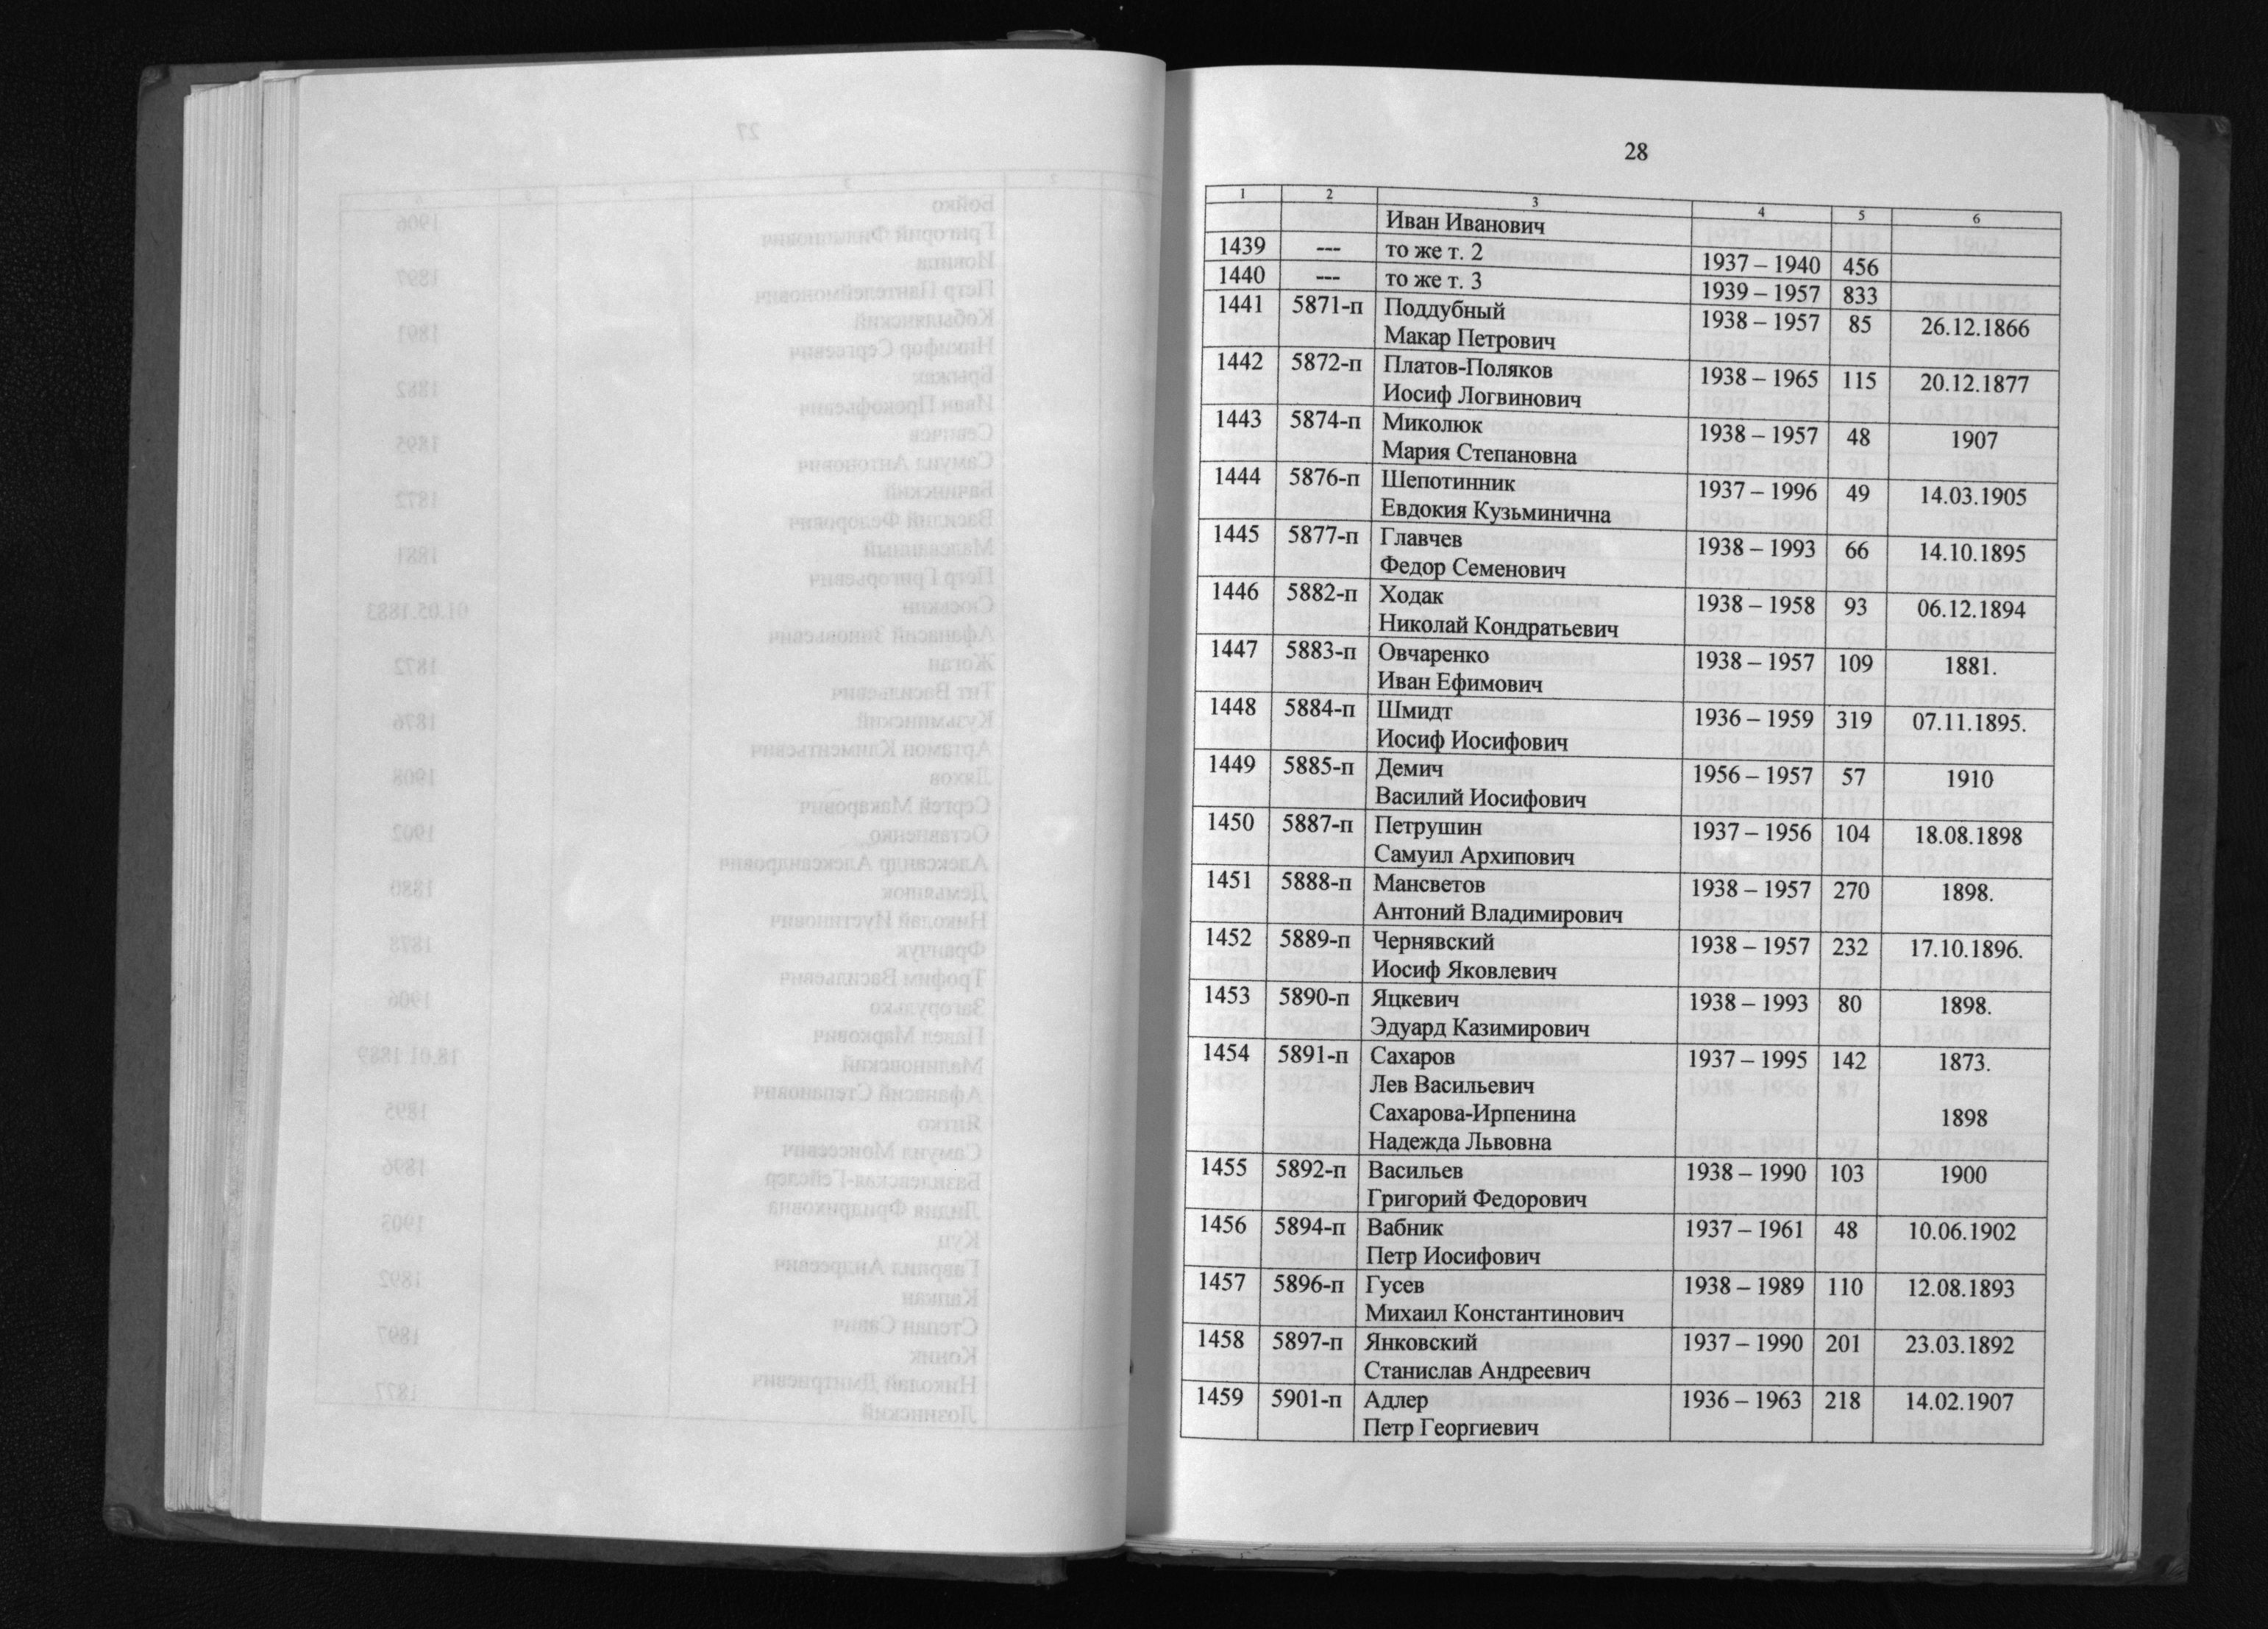 28
1 2 3 4 5 6
Иван Иванович
1439 --- то же т. 2 1937 – 1940 456
1440 --- то же т. 3 1939 – 1957 833
1441 5871-п Поддубный 1938 – 1957 85 26.12.1866
Макар Петрович
1442 5872-п Платов-Поляков 1938 – 1965 115 20.12.1877
Иосиф Логвинович
1443 5874-п Миколюк 1938 – 1957 48 1907
Мария Степановна
1444 5876-п Шепотинник 1937 – 1996 49 14.03.1905
Евдокия Кузьминична
1445 5877-п Главчев 1938 – 1993 66 14.10.1895
Федор Семенович
1446 5882-п Ходак 1938 – 1958 93 06.12.1894
Николай Кондратьевич
1447 5883-п Овчаренко 1938 – 1957 109 1881.
Иван Ефимович
1448 5884-п Шмидт 1936 – 1959 319 07.11.1895.
Иосиф Иосифович
1449 5885-п Демич 1956 – 1957 57 1910
Василий Иосифович
1450 5887-п Петрушин 1937 – 1956 104 18.08.1898
Самуил Архипович
1451 5888-п Мансветов 1938 – 1957 270 1898.
Антоний Владимирович
1452 5889-п Чернявский 1938 – 1957 232 17.10.1896.
Иосиф Яковлевич
1453 5890-п Яцкевич 1938 – 1993 80 1898.
Эдуард Казимирович
1454 5891-п Сахаров 1937 – 1995 142 1873.
Лев Васильевич
Сахарова-Ирпенина 1898
Надежда Львовна
1455 5892-п Васильев 1938 – 1990 103 1900
Григорий Федорович
1456 5894-п Вабник 1937 – 1961 48 10.06.1902
Петр Иосифович
1457 5896-п Гусев 1938 – 1989 110 12.08.1893
Михаил Константинович
1458 5897-п Янковский 1937 – 1990 201 23.03.1892
Станислав Андреевич
1459 5901-п Адлер 1936 – 1963 218 14.02.1907
Петр Георгиевич